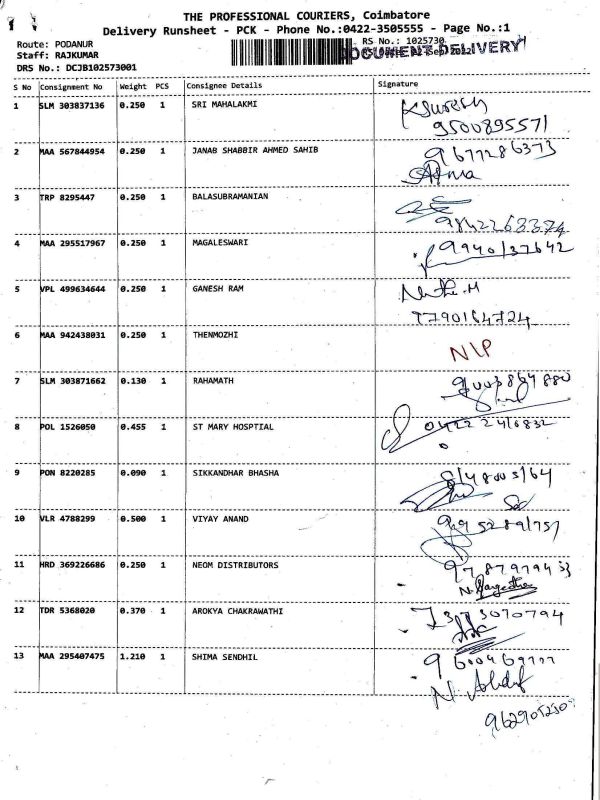 THE PROFESSIONAL COURIERS, Coimbatore
Delivery Runsheet - PCK - Phone No.:0422-3505555 - Page No.:1
Route: PODANUR RS No.: 1025730
Staff: RAJKUMAR DOCUMENT DELIVERY
DRS No.: DCJB102573001
S No Consignment No Weight PCS Consignee Details Signature
1 SLM 303837136 0.250 1 SRI MAHALAKMI K Suresh
9500895571
2 MAA 567844954 0.250 1 JANAB SHABBIR AHMED SAHIB 9677286373
3 TRP 8295447 0.250 1 BALASUBRAMANIAN
9842263374
4 MAA 295517967 0.250 1 MAGALESWARI 9940137642
5 VPL 499634644 0.250 1 GANESH RAM
6 MAA 942438031 0.250 1 THENMOZHI
N/P
7 SLM 303871662 0.130 1 RAHAMATH 9003864880
8 POL 1526050 0.455 1 ST MARY HOSPTIAL 0422 2416832
9 PON 8220285 0.090 1 SIKKANDHAR BHASHA 8148005164
10 VLR 4788299 0.500 1 VIYAY ANAND
11 HRD 369226686 0.250 1 NEOM DISTRIBUTORS
12 TDR 5368020 0.370 1 AROKYA CHAKRAWATHI 7373070794
13 MAA 295407475 1.210 1 SHIMA SENDHIL